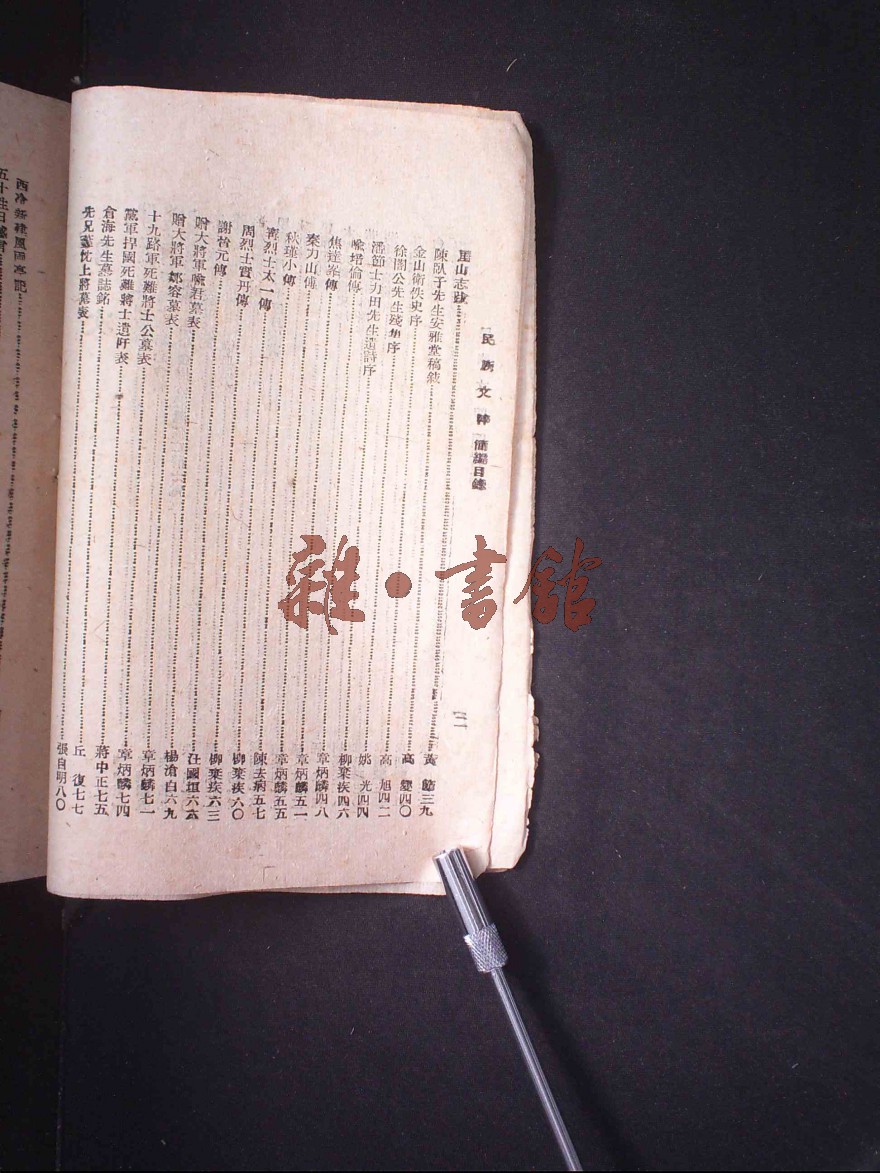 民族文粹 簡編目錄 二
厓山志跋……黃節三九
陳臥子先生安雅堂稿敍……高燮四〇
金山衛佚史序……高旭四二
徐闇公先生殘集序……姚光四四
潘節士力田先生遺詩序……柳棄疾四六
喻培倫傳……章炳麟四八
焦達峯傳……章炳麟五一
秦力山傳……章炳麟五五
秋瑾小傳……陳去病五七
甯烈士太一傳……柳棄疾六〇
周烈士實丹傳……柳棄疾六三
謝晉元傳……汪國垣六六
贈大將軍喻君墓表……楊滄白六九
贈大將軍鄒容墓表……章炳麟七一
十九路軍死難將士公墓表……章炳麟七四
黨軍捍國死難將士遺阡表……蔣中正七五
倉海先生墓誌銘……丘復七七
先兄藎忱上將墓表……張自明八〇
西泠新建風雨亭記……
五十生日
雜·書館